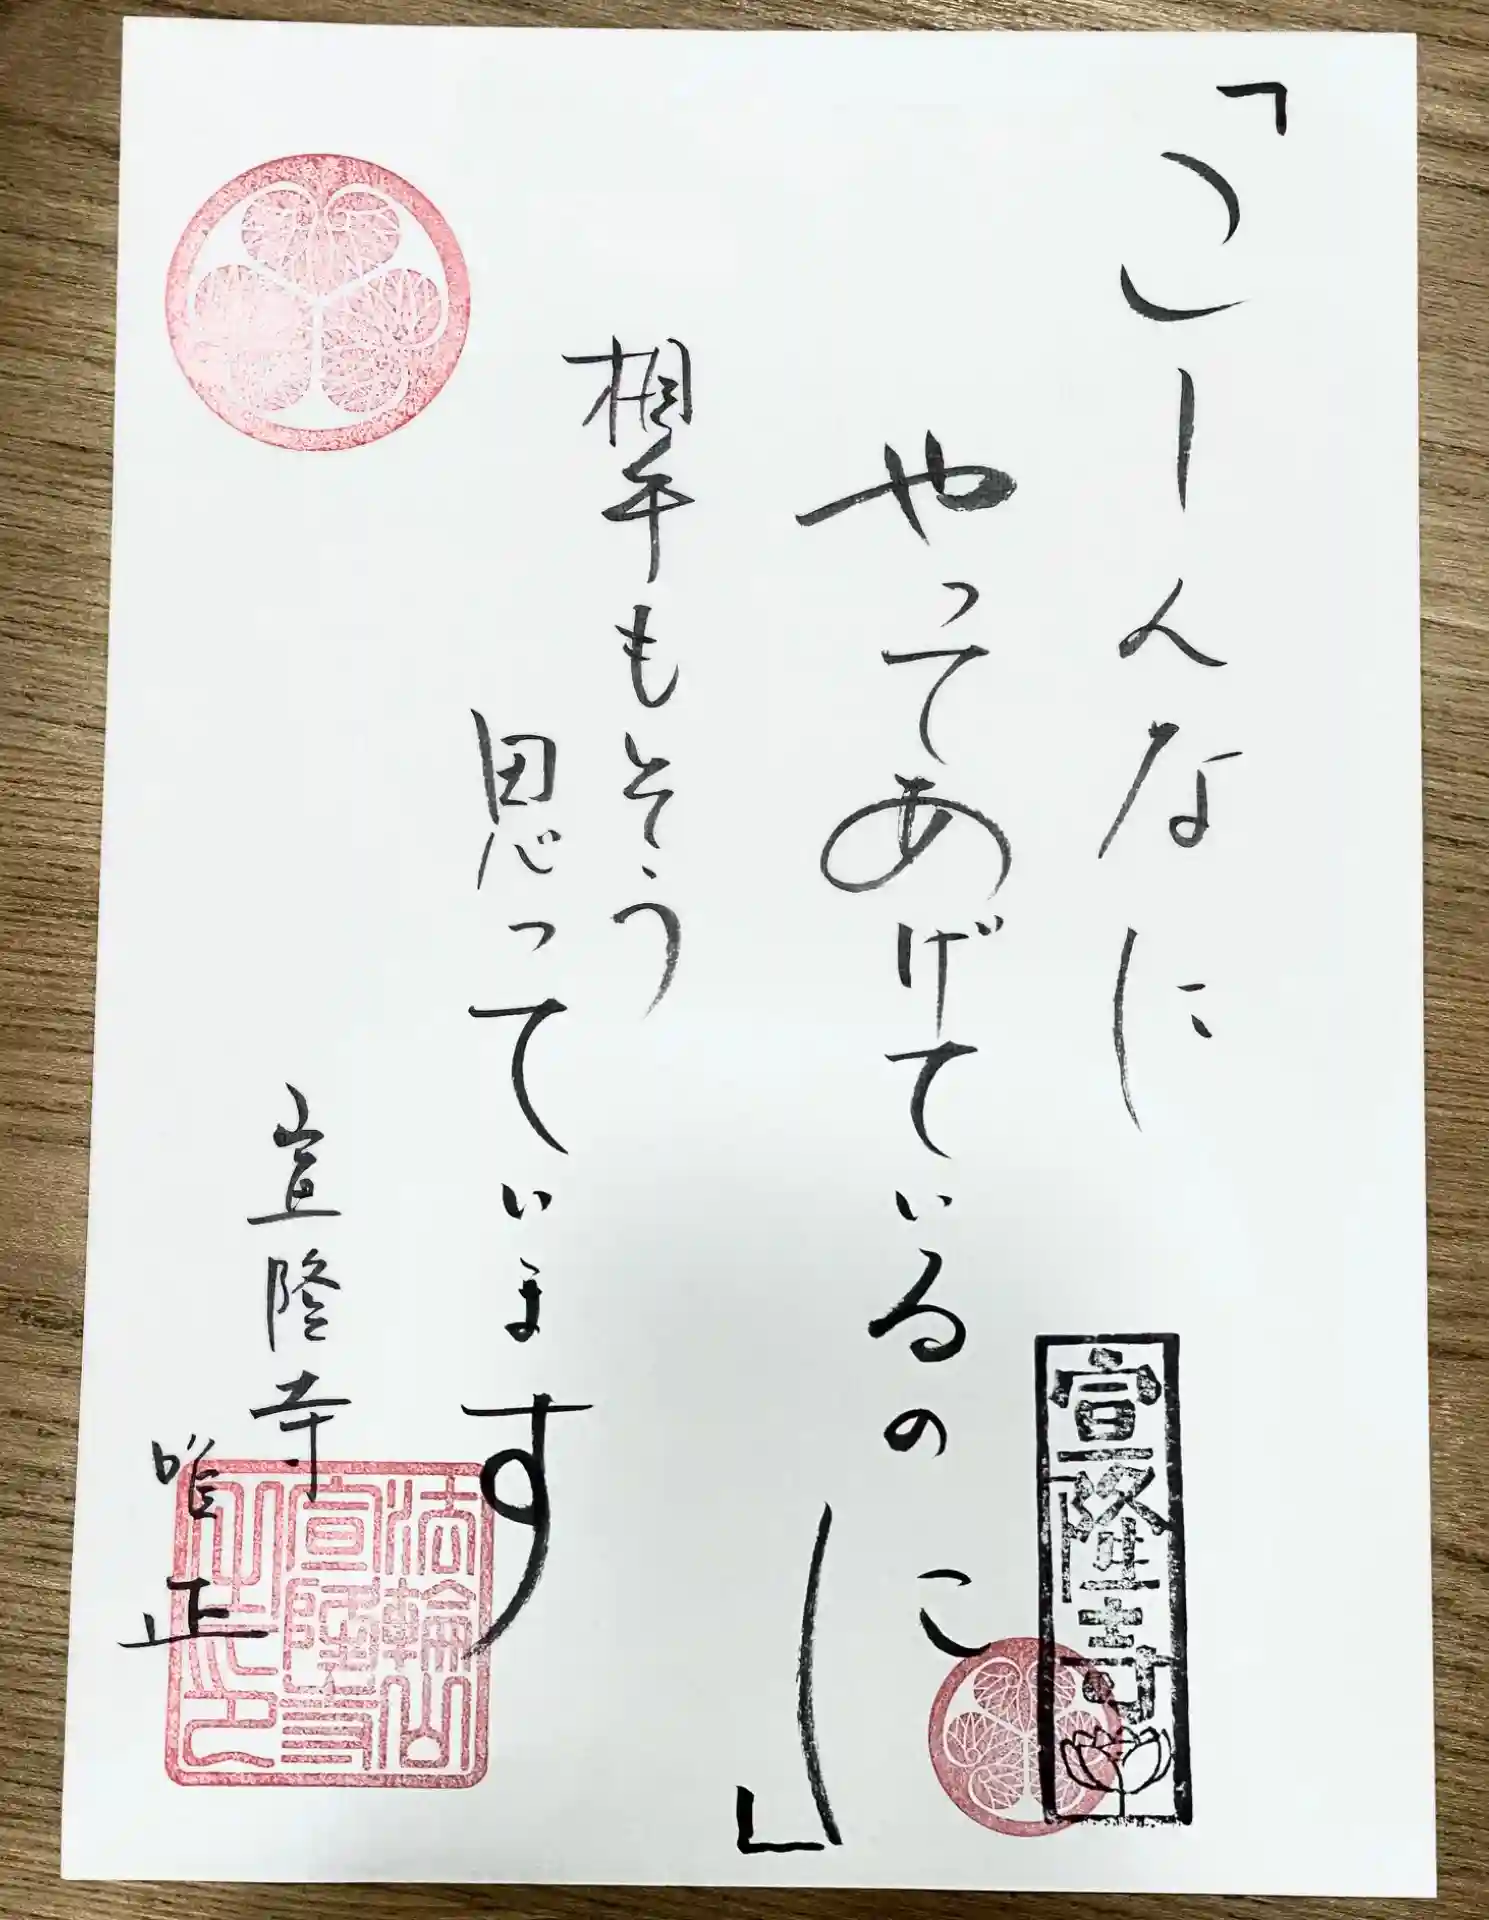 「こーんなに
やってあげているのにー」
相手もそう
思っています
宣隆寺
唯正
宣隆寺
法輪山
宣隆寺